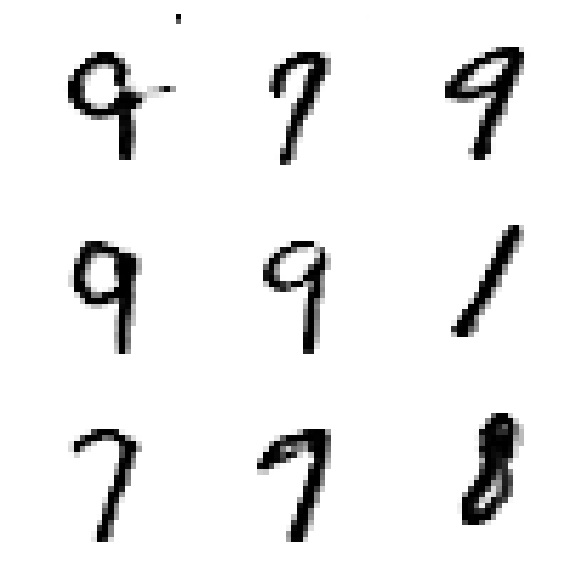 9 7 9
9 9 1
7 7 8